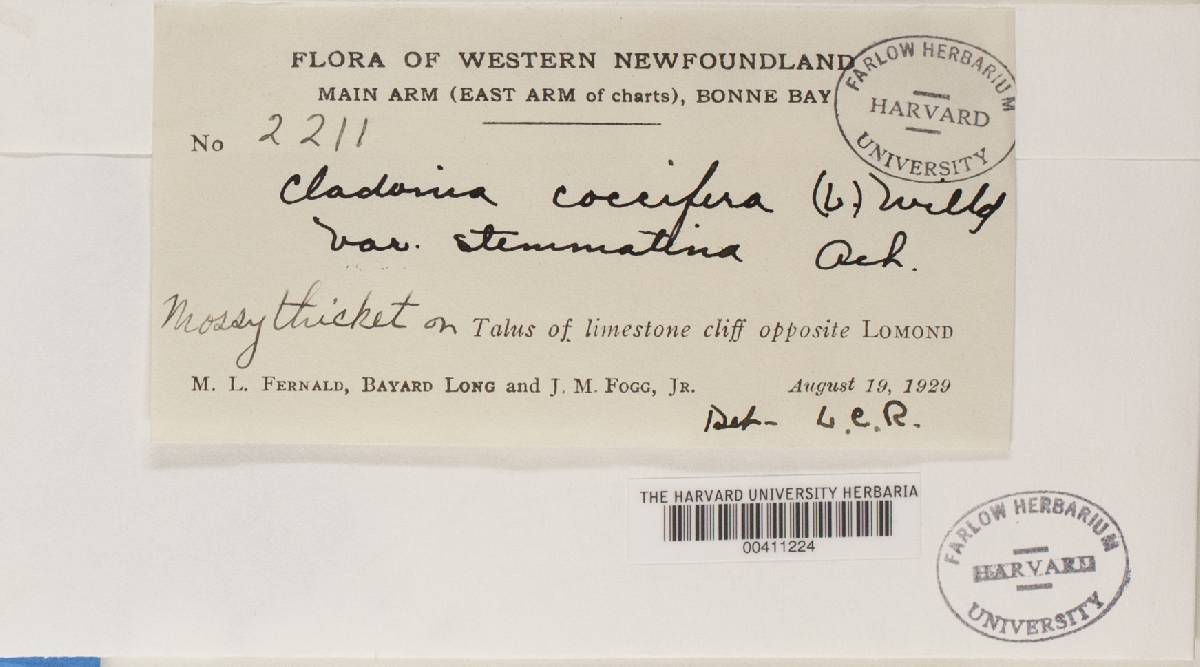 FLORA OF WESTERN NEWFOUNDLAND
MAIN ARM (EAST ARM of charts), BONNE BAY
FARLOW HERBARIUM
HARVARD
UNIVERSITY
No 2211
Cladonia coccifera (L.) Willd
var. stemmatina Ach.
Mossy thicket on Talus of limestone cliff opposite LOMOND
M. L. FERNALD, BAYARD LONG and J. M. FOGG, JR. August 19, 1929
Det- L.C.R.
THE HARVARD UNIVERSITY HERBARIA
00411224
FARLOW HERBARIUM
HARVARD
UNIVERSITY